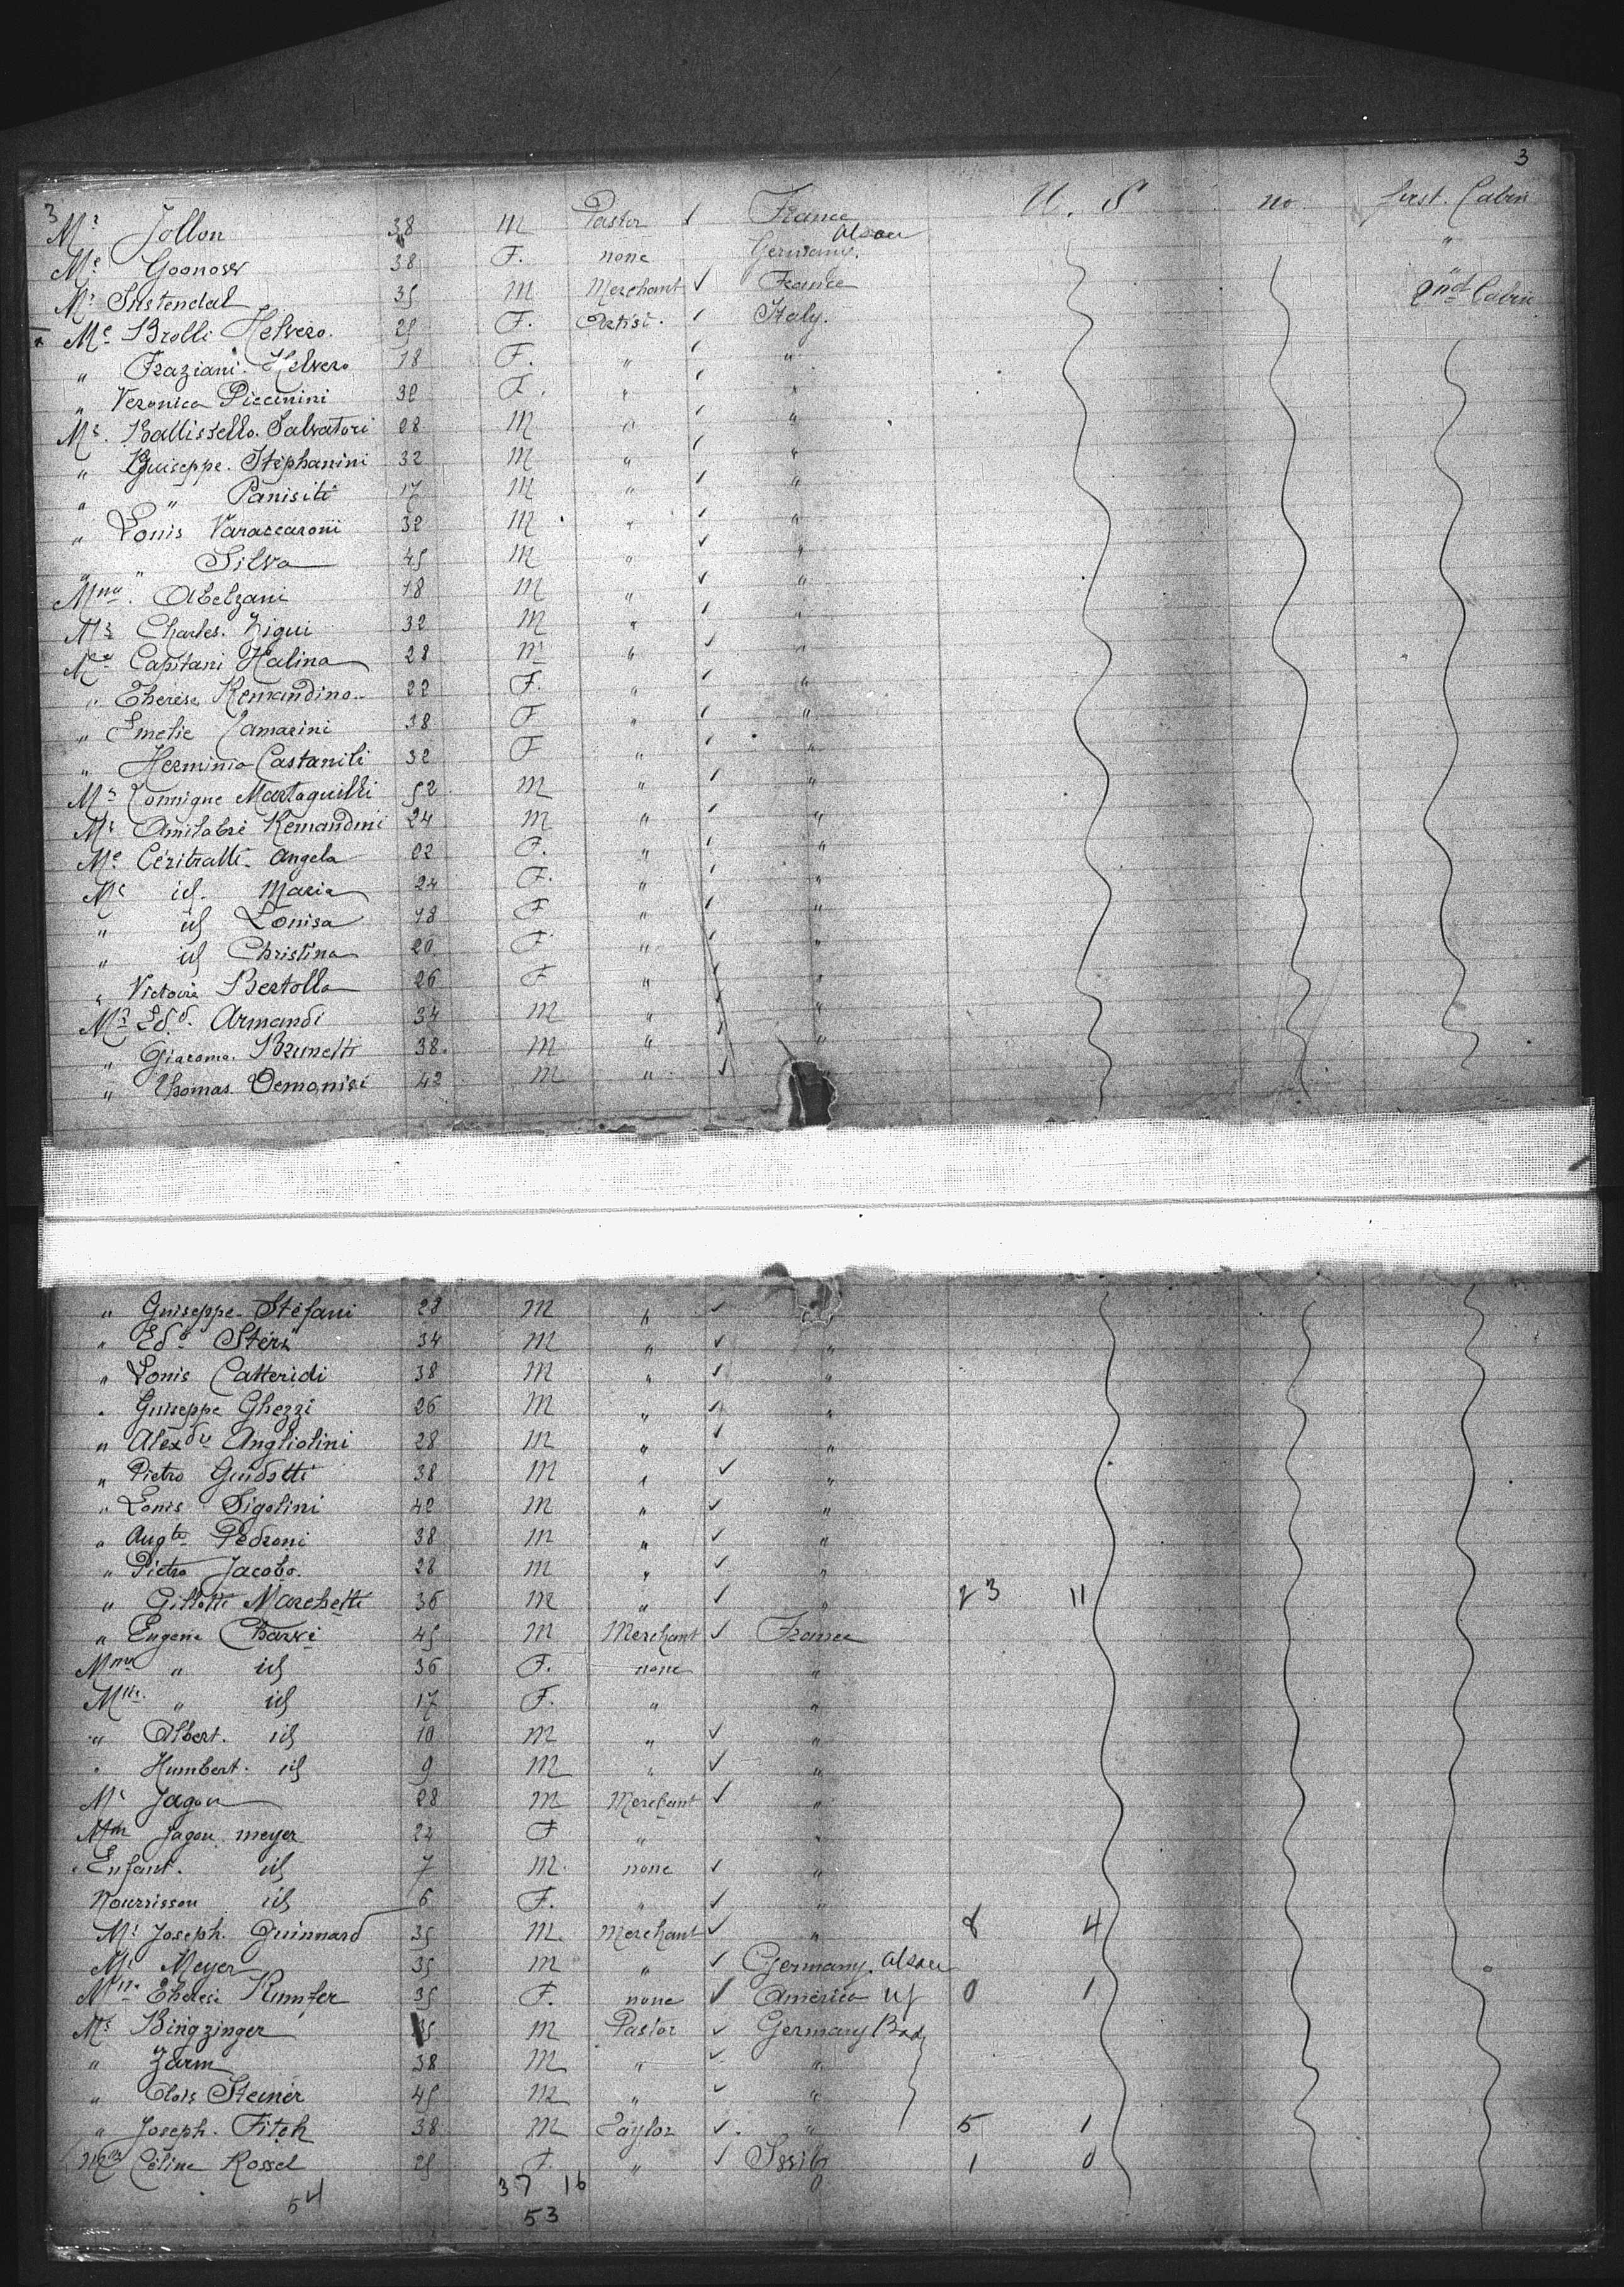 3
3
Mr Jollon 38 M Pastor ✓ France U. S no first. Cabin
Me Goonoser 38 F. none Germany. Alsace "
Mr Sustendal 35 M Merchant ✓ France "
Me Brolli Helvero. 25 F. Artist. ✓ Italy. 2nd Cabin
" Fraziani. Helvero 18 F. " ✓ "
" Veronica Piccinini 32 F. " ✓ "
Mr. Battissello. Salvatori 28 M " ✓ "
" Guiseppe. Stéphanini 32 M " ✓ "
" " Panisiti 17 M " ✓ "
" Louis Varaccaronii 32 M " ✓ "
" " Silva 45 M " ✓ "
Mme. Abelzani 18 M " ✓ "
Mr Charles. Zigui 32 M " ✓ "
Me Capitani Halina 28 M " ✓ "
" Thérèse Remandino 22 F. " ✓ "
" Emelie Zamarini 38 F " ✓ "
" Herminia Castanili 32 F " ✓ "
Mr Martaguilli 52 M " ✓ "
Mr Amilabré Remandini 24 M " ✓ "
Me Céritralli. Angela 22 F. " ✓ "
Me id. Maria 24 F. " ✓ "
" id Louisa 18 F " ✓ "
" id Christina 20 F. " ✓ "
" Victoria Bertolla 26 F " ✓ "
Mr Edd. Armandi 34 M " ✓ "
" Giacomo. Brunetti 38. M " ✓ "
" Thomas. Demonisi 42 M " ✓ "
" Guiseppe. Stéfani 28 M " ✓
" Edd Stéri 34 M " ✓ "
" Louis Catteridi 38 M " ✓ "
" Guiseppe Ghezzi 26 M " ✓ "
" Alexdre Angliolini 28 M " ✓ "
" Pietro Guidotti 38 M " ✓ "
" Louis Sigolini 42 M " ✓ "
" Augte Pedroni 38 M " ✓ "
" Pietro Jacobo. 28 M " ✓ "
" Gillotti Marchetti 36 M " ✓ " 23 11
" Eugene Charvé 45 M Merchant ✓ France
Mme " id 36 F. none "
Mlle. " id 17 F. " "
" Albert. id 10 M " ✓ "
" Humbert. id 9 M " ✓ "
Mr Jagou 28 M Merchant ✓ "
Mme Jagou meyer 24 F " "
Enfant. id 7 M. none ✓ "
Nourrisson id 6 F. " ✓ "
Mr Joseph. Guinnard 35 M. Merchant ✓ " 8 4
Mr Meyer 35 M " ✓ Germany. Alsace
Mlle Therese Rumfer 35 F. none ✓ America US 0 1
Mr Bingzinger 35 M Pastor ✓ Germany Bad
" Zarm 38 M " ✓ "
" Alois Steiner 45 M " ✓ "
" Joseph. Fitch 38 M Taylor ✓ " 5 1
Mlle Céline Rossel 25 F. " ✓ 1 0
54 37 16
53